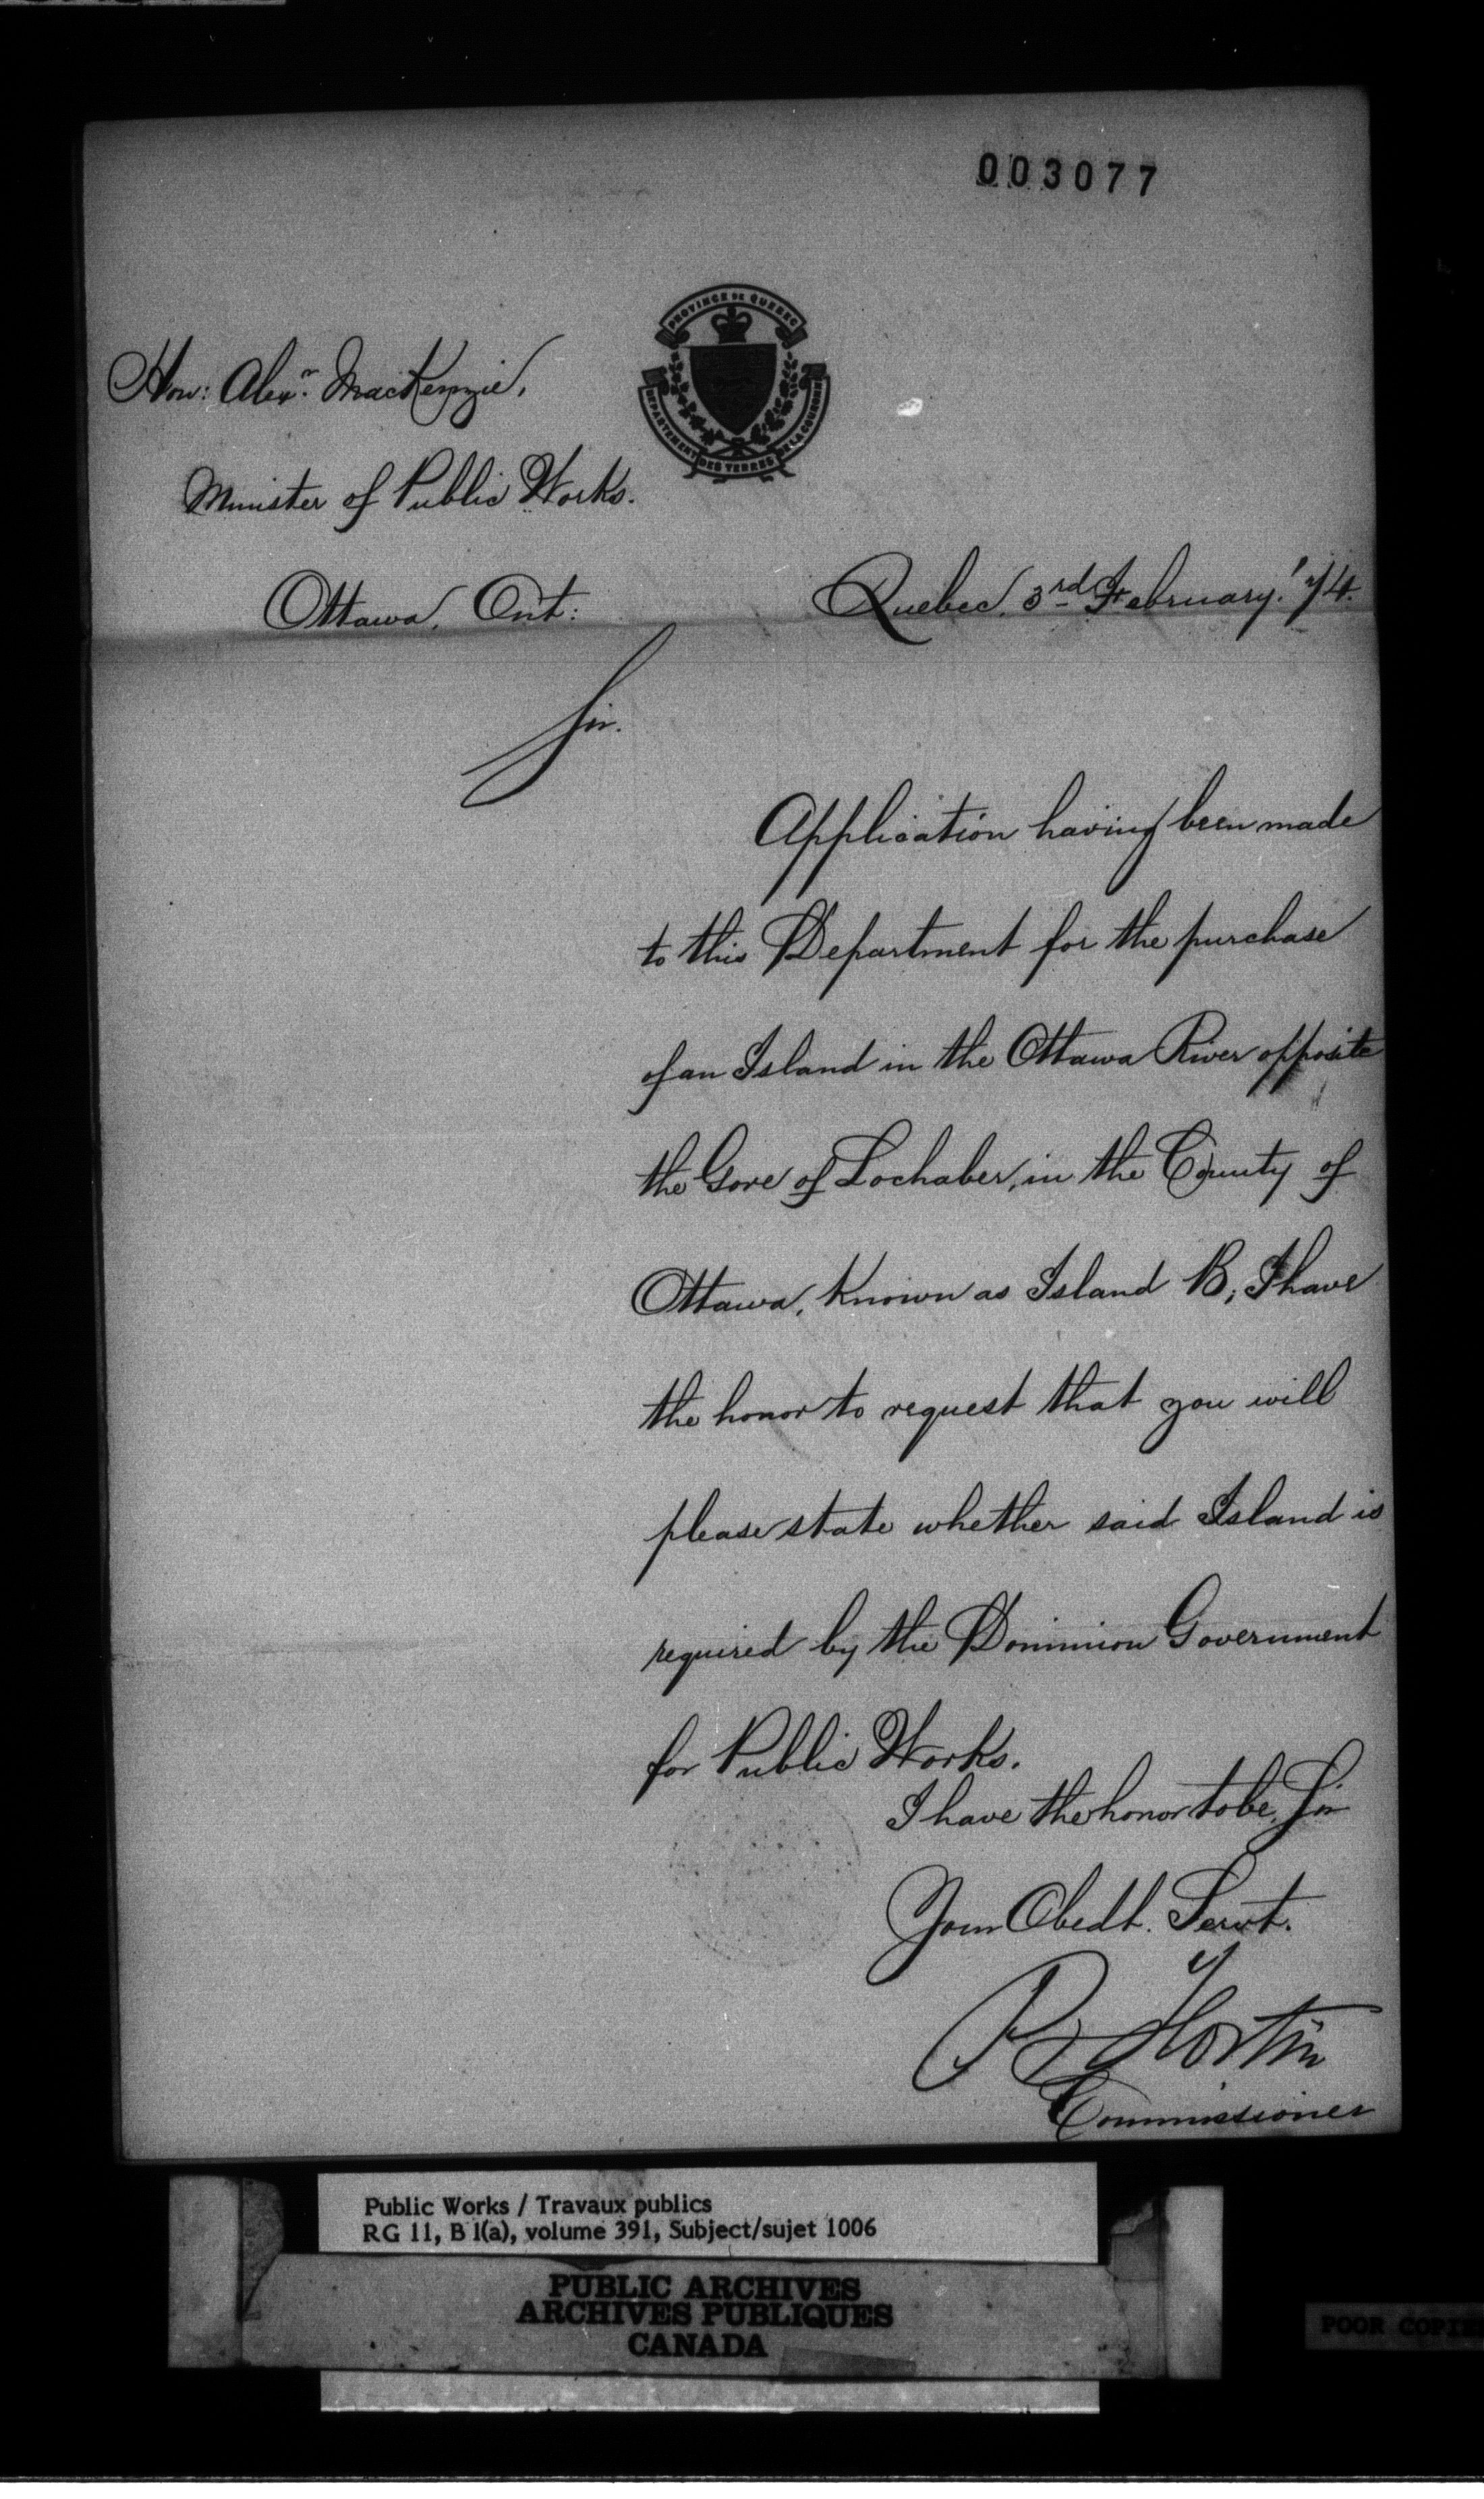 003077
PROVINCE DE QUEBEC
DEPARTEMENT DES TERRES DE LA COURONNE
Hon: Alexr. MacKenzie,
Minister of Public Works.
Ottawa, Ont:
Quebec, 3rd February, '74.
Sir.
Application having been made
to this Department for the purchase
of an Island in the Ottawa River opposite
the Gore of Lochaber, in the County of
Ottawa, Known as Island B; I have
the honor to request that you will
please state whether said Island is
required by the Dominion Government
for Public Works.
I have the honor to be, Sir
Your Obedt. Servt.
P. Fortin
Commissioner
Public Works / Travaux publics
RG 11, B 1(a), volume 391, Subject/sujet 1006
PUBLIC ARCHIVES
ARCHIVES PUBLIQUES
CANADA
POOR COPIE